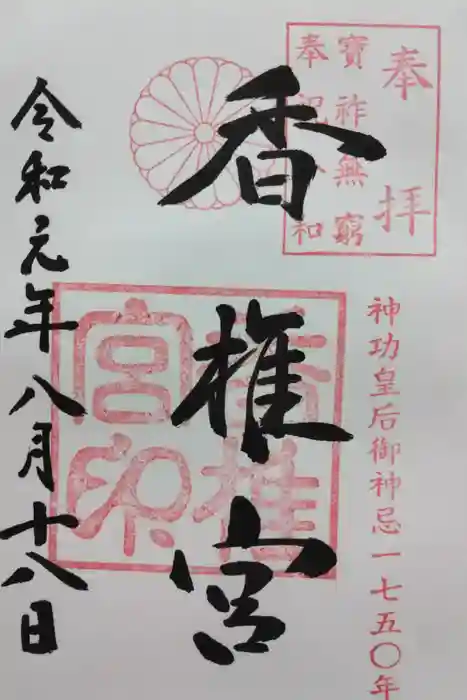 奉拝
寶祚無窮
奉祝令和
神功皇后御神忌一七五〇年
香椎宮
香椎
宮印
令和元年八月十八日